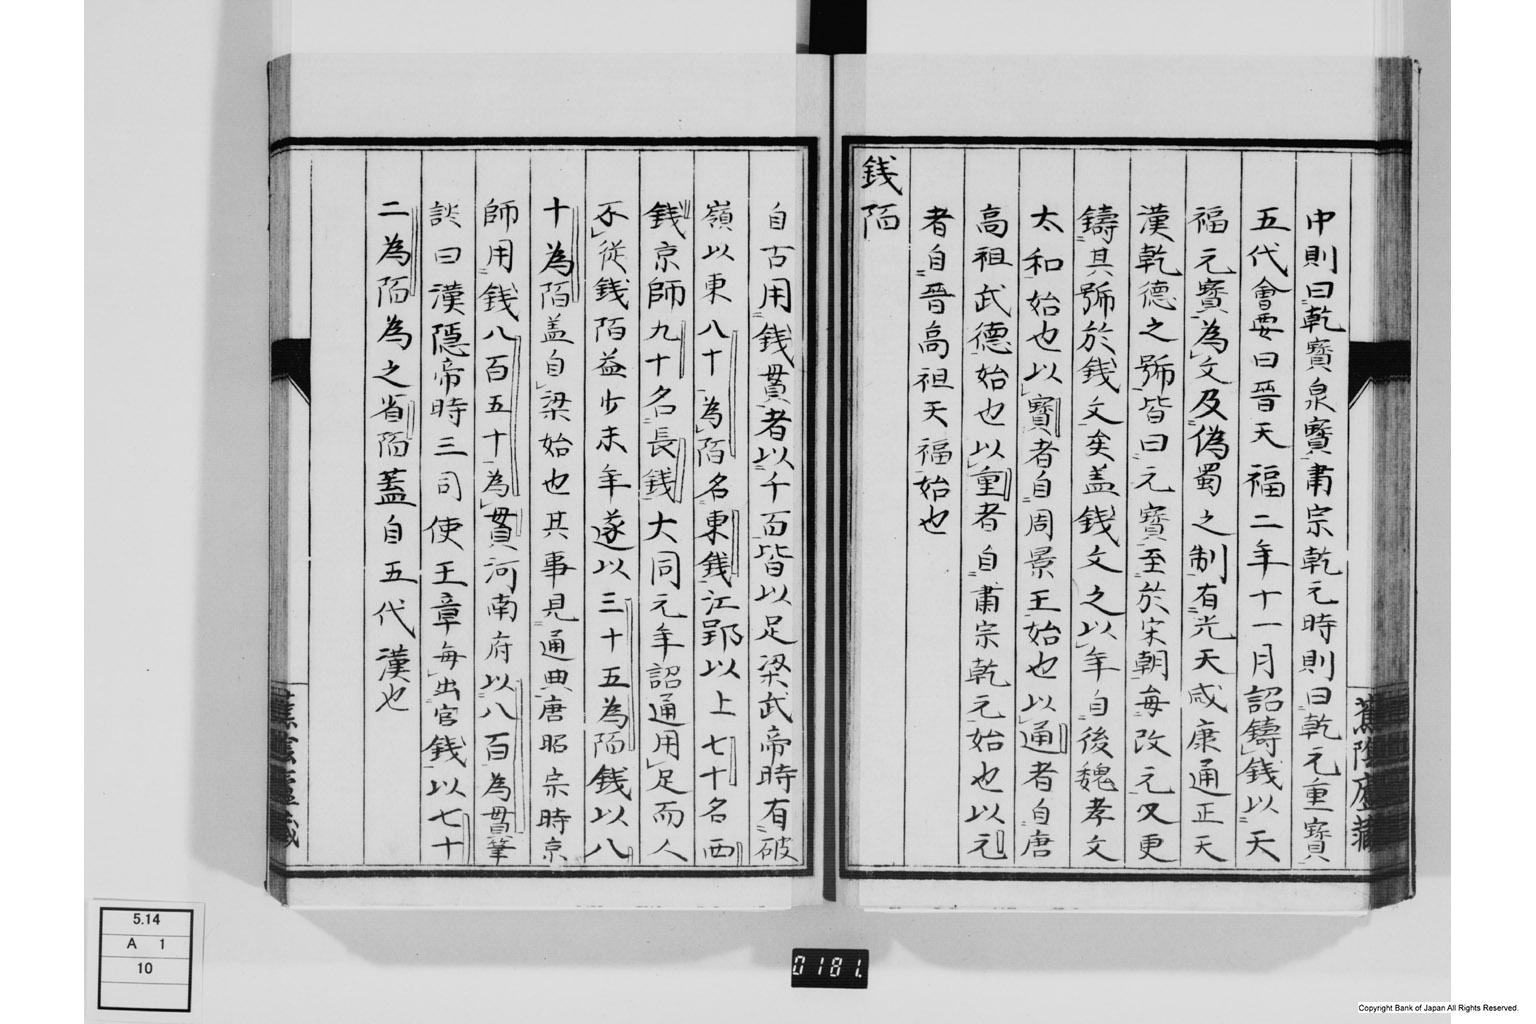 中則曰乾寶泉寶肅宗乾元時則曰乾元重寶
五代會要曰晉天福二年十一月詔鑄錢以天
福元寶為文及偽蜀之制有光天咸康通正天
漢乾德之號皆曰元寶至於宋朝每改元又更
鑄其號於錢文矣盖錢文之以年自後魏孝文
太和始也以寶者自周景王始也以通者自唐
高祖武德始也以重者自肅宗乾元始也以元
者自晉高祖天福始也
錢陌
自古用錢貫者以千百皆以足梁武帝時有破
嶺以東八十為陌名東錢江郢以上七十名西
錢京師九十名長錢大同元年詔通用足而人
不從錢陌益少末年遂以三十五為陌錢以八
十為陌盖自梁始也其事見通典唐昭宗時京
師用錢八百五十為貫河南府以八百為貫筆
談曰漢隱帝時三司使王章每出官錢以七十
二為陌為之省陌蓋自五代漢也
蕉陰廬藏
5.14
A 1
10
0181.
Copyright Bank of Japan All Rights Reserved.